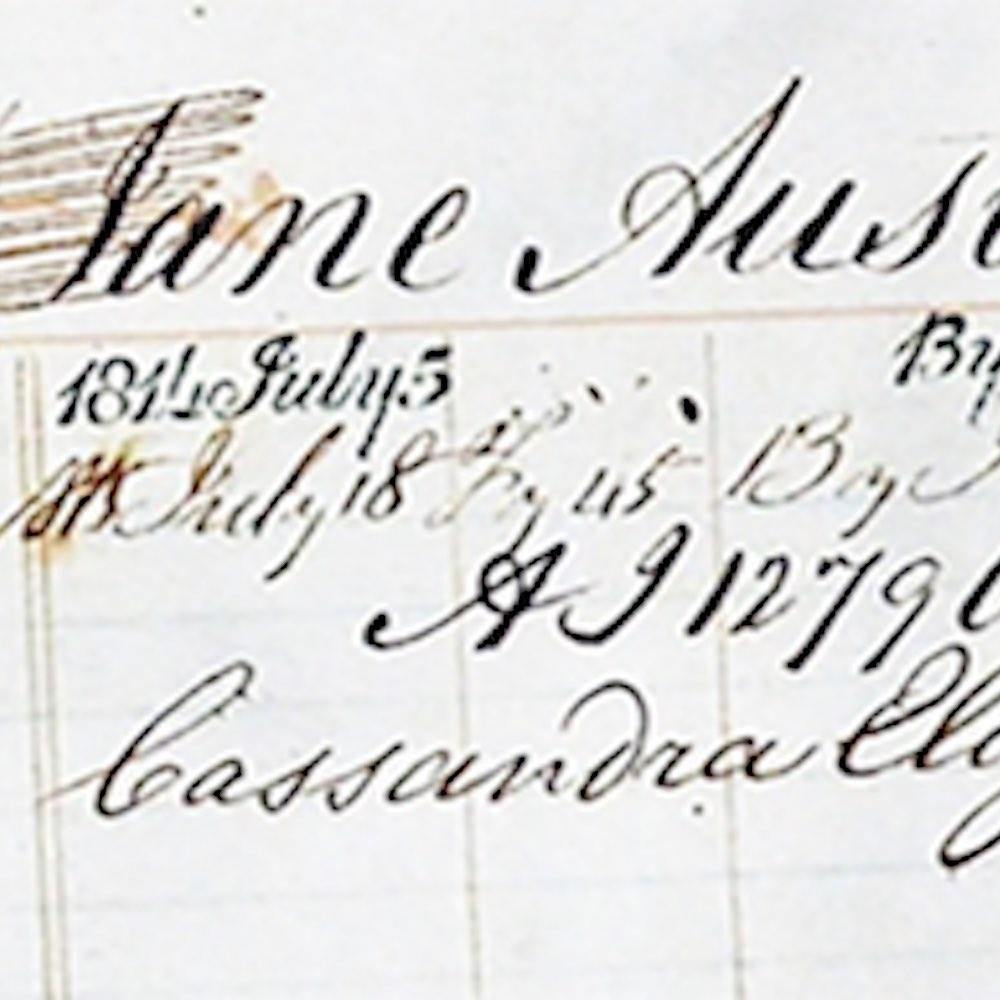 Jane Aus
1814 July 5 By
July 18 By 45 By
A I 1279
Cassandra El